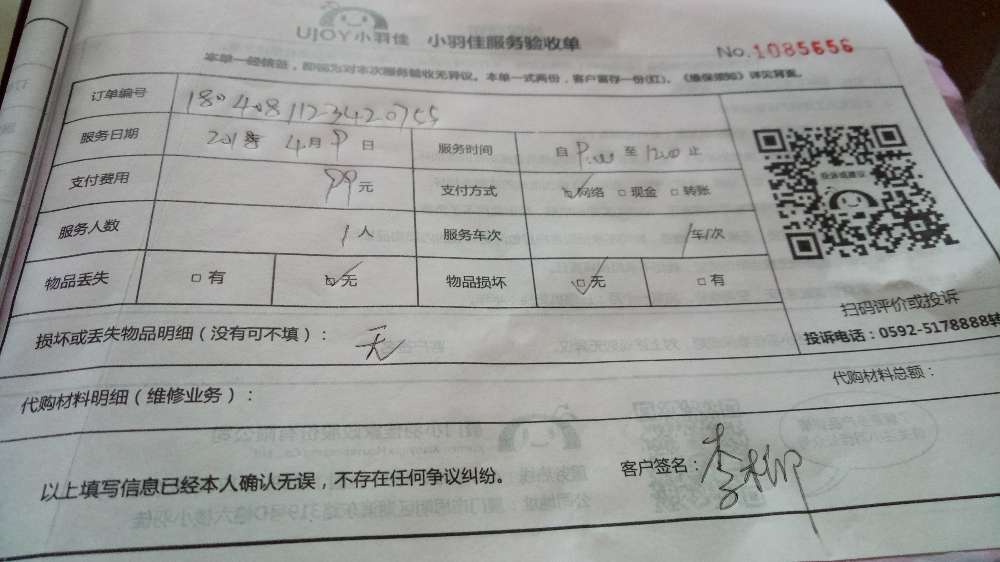 UJOY小羽佳 小羽佳服务验收单
No.1085656
本单一经签签，即视为对本次服务验收无异议。本单一式两份，客户留存一份(红)，《维保须知》详见背面。
订单编号 1804081123420755
服务日期 2018年 4月 9日 服务时间 自 9:00 至 12:00 止
支付费用 99元 支付方式 ☑网络 □现金 □转账
服务人数 1人 服务车次 1车/次
物品丢失 □有 ☑无 物品损坏 ☑无 □有
投诉或建议
扫码评价或投诉
投诉电话：0592-5178888转
损坏或丢失物品明细（没有可不填）： 无
代购材料明细（维修业务）： 代购材料总额：
以上填写信息已经本人确认无误，不存在任何争议纠纷。 客户签名：李柳